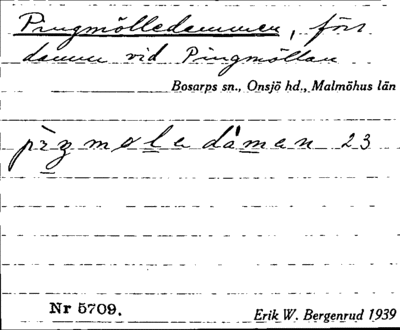 Pingmölledammen, förr
damm vid Pingmöllan
Bosarps sn., Onsjö hd., Malmöhus län
23
Nr 5709.
Erik W. Bergenrud 1939